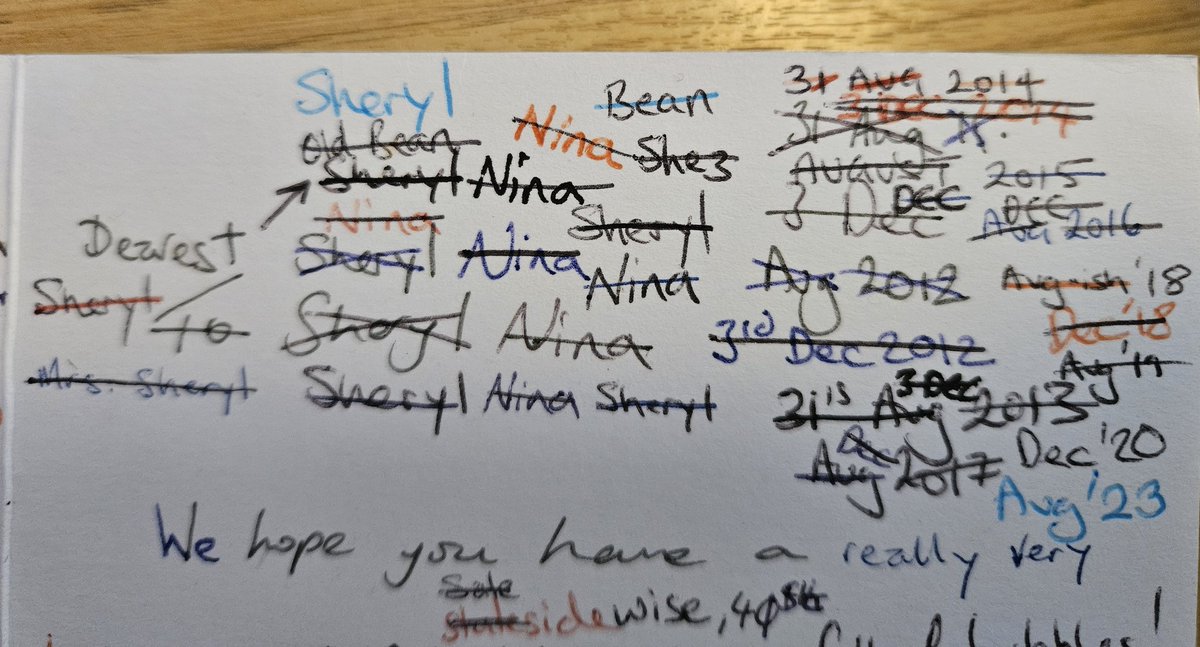 Sheryl Bean 31 Aug 2014
Nina 3 Dec 2014
Old Bean Shez 31 Aug
Sheryl Nina August 2015
Nina Sheryl 3 Dec DEC Dec
Dearest Sheryl Nina Aug 2016
Sheryl Nina Aug 2012 Aug-ish '18
to Sheryl Nina 3rd Dec 2012 Dec '18
Aug '19
Mrs. Sheryl Sheryl Nina Sheryl 31st Aug 3 Dec 2013
Dec Dec '20
Aug 2017
Aug '23
We hope you have a really very
stateside wise, 40